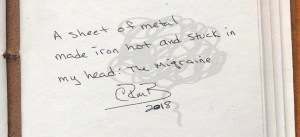 A sheet of metal
made iron hot and stuck in
my head: The Migraine
2018